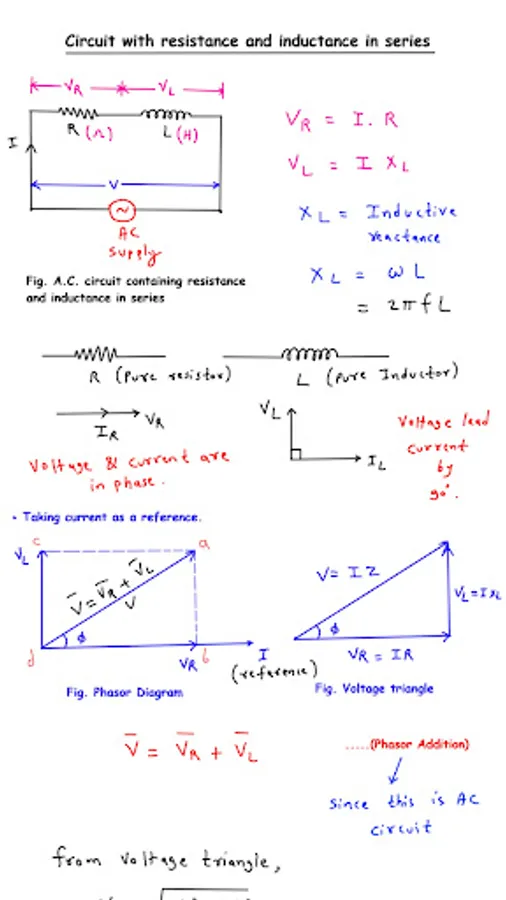 Circuit with resistance and inductance in series
V_R V_L
R (Ω) L (H)
I
V
AC
Supply
Fig. A.C. circuit containing resistance
and inductance in series
V_R = I . R
V_L = I X_L
X_L = Inductive
reactance
X_L = ω L
= 2πfL
R (Pure resistor) L (Pure Inductor)
I_R V_R
Voltage & current are
in phase.
V_L
I_L
Voltage lead
current
by
90°.
• Taking current as a reference.
c a
V_L
V̄ = V̄_R + V̄_L
V
ϕ
d V_R b I
(reference)
Fig. Phasor Diagram
V = IZ
V_L = IX_L
ϕ
V_R = IR
Fig. Voltage triangle
V̄ = V̄_R + V̄_L .....(Phasor Addition)
Since this is AC
circuit
from voltage triangle,